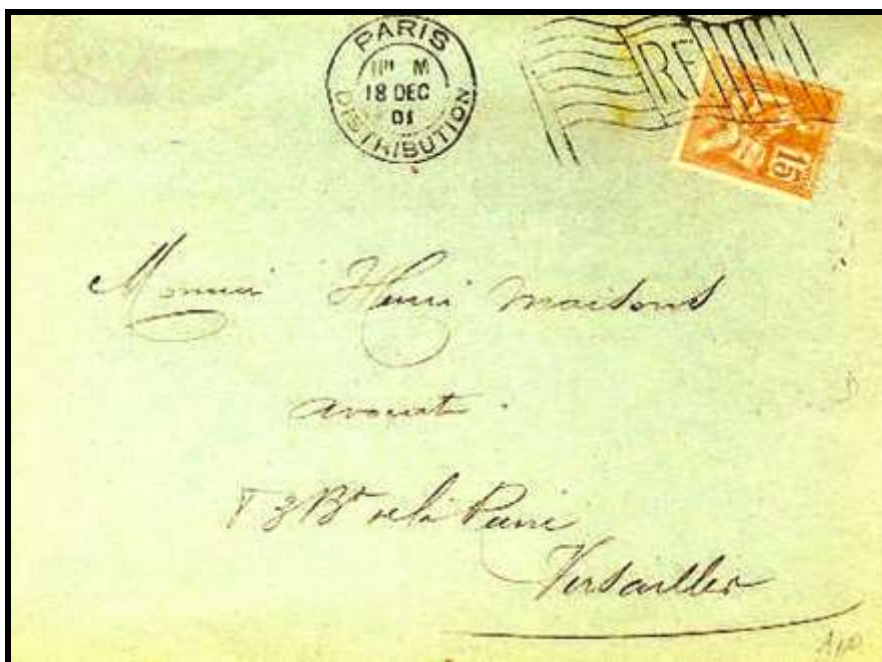 PARIS
18 DEC
01
DISTRIBUTION
RF
15
Monsieur Henri Maisons
avocat.
Bd de la Reine
Versailles